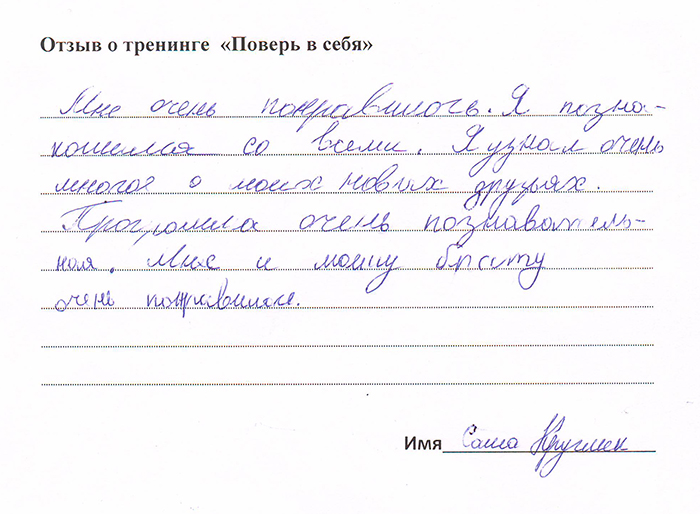 Отзыв о тренинге «Поверь в себя»
Мне очень понравилось. Я позна-
комился со всеми. Я узнал очень
много о моих новых друзьях.
Программа очень познаватель-
ная. Мне и моему брату
очень понравилось.
Имя Саша